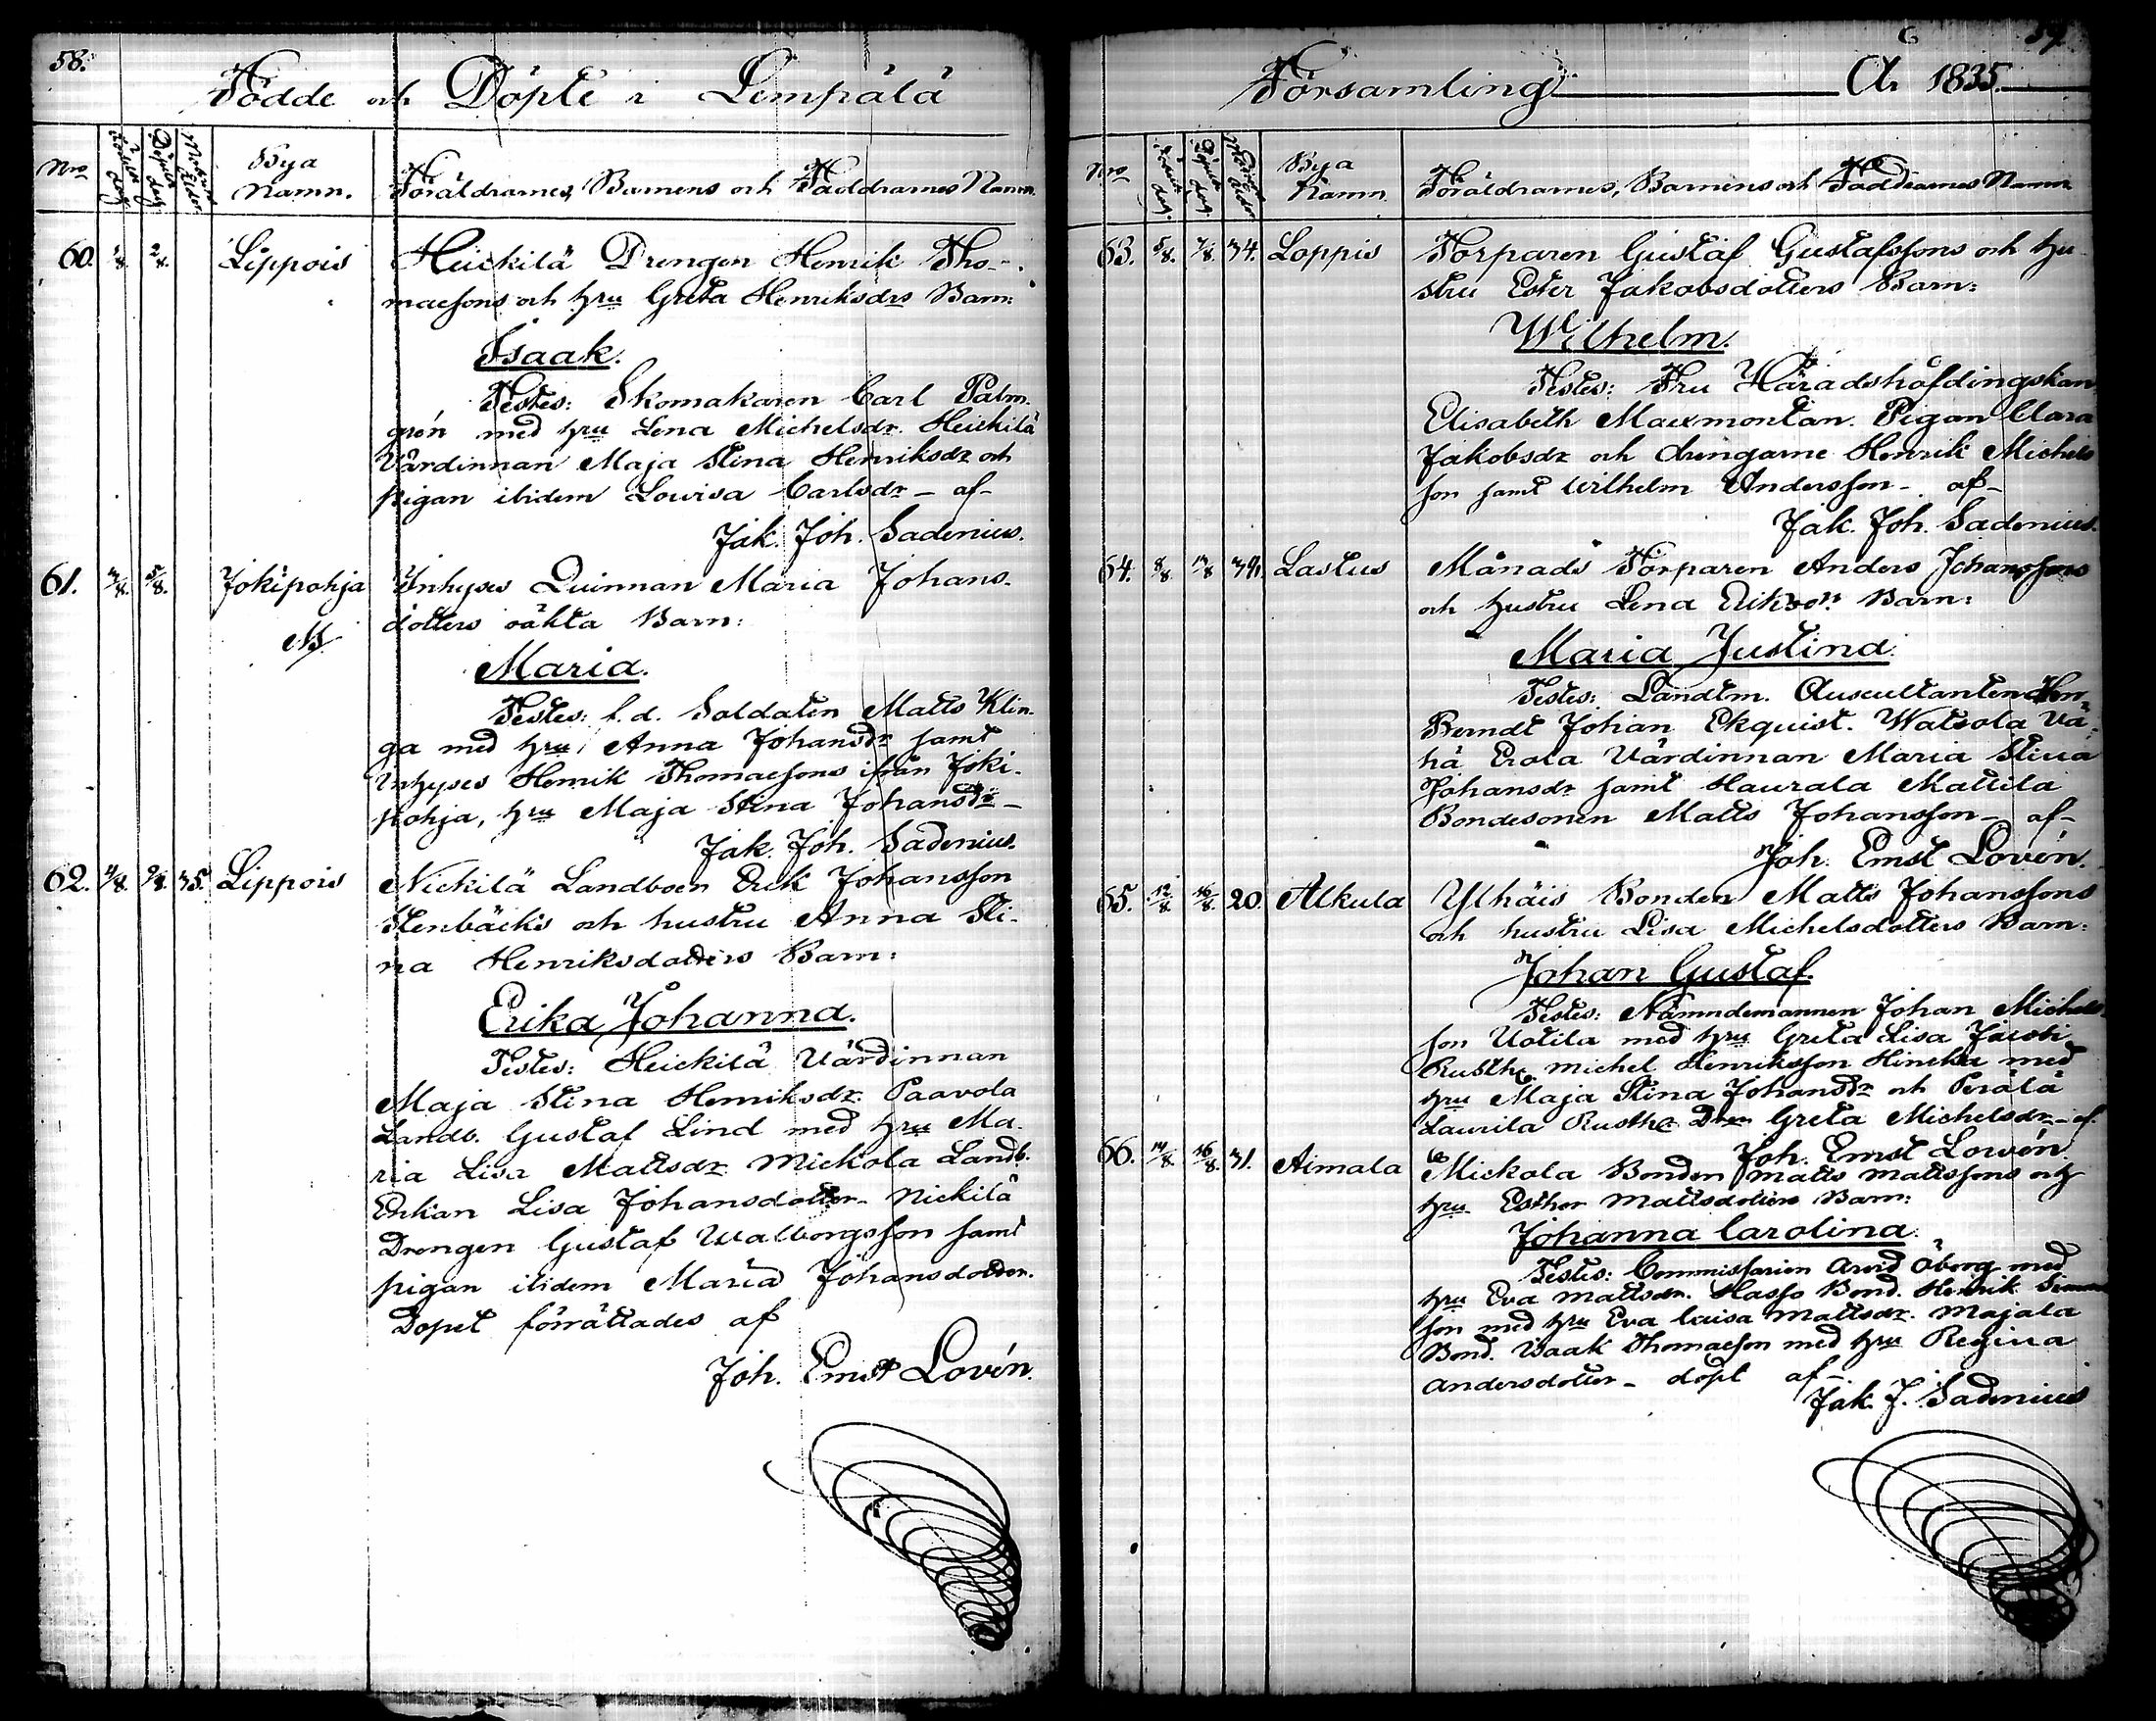 58.
Födde och Döpte i Lempälä
Nro
Födelse dag
Döpelse dag
Modrens Ålder
Bya Namn.
Föräldrarnes, Barnens och Faddrarnes Namn.
60. 1/8. 2/8. Lippois Heickilä Drengen Henrik Tho-
maesons och hru Greta Henriksdrs Barn:
Isaak.
Testes: Skomakaren Carl Palm-
grén med hru Lena Michelsdr. Heickilä
Värdinnan Maja Stina Henriksdr och
pigan ibidem Lowisa Carlsdr – af –
Jak. Joh. Sadenius.
61. 3/8. 5/8. Jokipohja Inhyses Quinnan Maria Johans-
dotters oäkta Barn:
Maria.
Testes: f.d. Soldaten Matts Klin-
ga med hru Anna Johansdr samt
Inhyses Henrik Thomaesons ifrån Joki-
pohja, hru Maja Stina Johansdr –
Jak. Joh. Sadenius.
62. 9/8. 35. Lippois Nickilä Landboen Erik Johansson
Stenbäcks och hustru Anna Sti-
na Henriksdotters Barn:
Erika Johanna.
Testes: Heickilä Värdinnan
Maja Stina Henriksdr. Paavola
Landb. Gustaf Lind med hru Ma-
ria Lisa Mattsdr. Mickola Landb.
Enkan Lisa Johansdotter – Nickilä
Drengen Gustaf Walborgsson samt
pigan ibidem Maria Johansdotter.
Dopet förrättades af
Joh. Ernst Lovén.
59.
Församling År 1835.
Nro
Födelse dag
Döpelse dag
Modrens Ålder
Bya Namn.
Föräldrarnes, Barnens och Faddrarnes Namn
63. 5/8. 7/8. 34. Loppis Torparen Gustaf Gustafssons och hu-
stru Ester Jakobsdotters Barn:
Wilhelm.
Testes: Fru Häradshöfdingskan
Elisabeth Maexmontan. Pigan Clara
Jakobsdr och drengarne Henrik Michels
son samt Wilhelm Andersson – af –
Jak. Joh. Sadenius.
64. 8/8. 13/8 39. Lastus Månads Torparen Anders Johanssons
och hustru Lena Eriksdrs Barn:
Maria Justina.
Testes: Landtm. Auscultanten Herr
Berndt Johan Ekquist. Watsola Vä-
hä Erola Värdinnan Maria Stina
Johansdr samt Haurala Mattila
Bondesonen Matts Johansson – af –
Joh. Ernst Lovén.
65. 12/8. 16/8. 20. Alkula Ylhäis Bonden Matts Johanssons
och hustru Lisa Michelsdotters Barn:
Johan Gustaf.
Testes: Nämndemannen Johan Michels
son Uotila med hru Greta Lisa
Rusth. Michel Henriksson med
hru Maja Stina Johansdr och Perälä
Laurila Rusth. Greta Michelsdr – af
Joh. Ernst Lovén
66. 14/8. 16/8. 31. Aimala Mickola Bonden Matts Mattssons och
hru Esther Mattsdotters Barn:
Johanna Carolina.
Testes: Commissarien Arvid Öberg med
hru Eva Mattsdr. Hasso Bond. Henrik
son med hru Eva Caisa Mattsdr. Majala
Bond. Isaak Thomaeson med hru Regina
Andersdotter – döpt af –
Jak. J. Sadenius